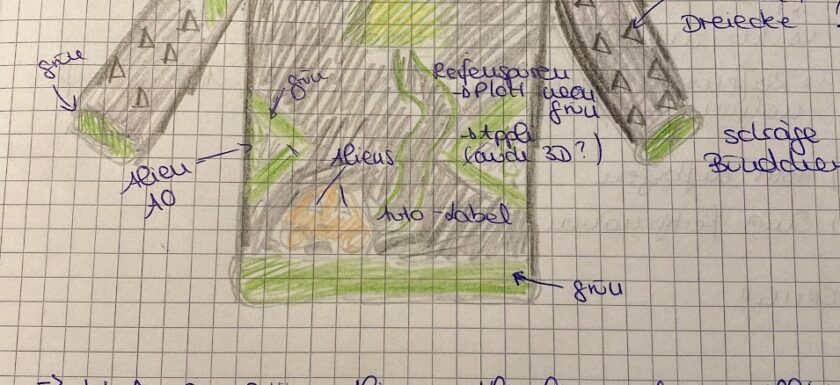 Dreiecke
grün
grün
Reifenspuren
→ Plott neon
grün
→ Appli
(auch 3D?)
schräge
Bündchen
Aliens
Alien
AO
Auto-Label
grün